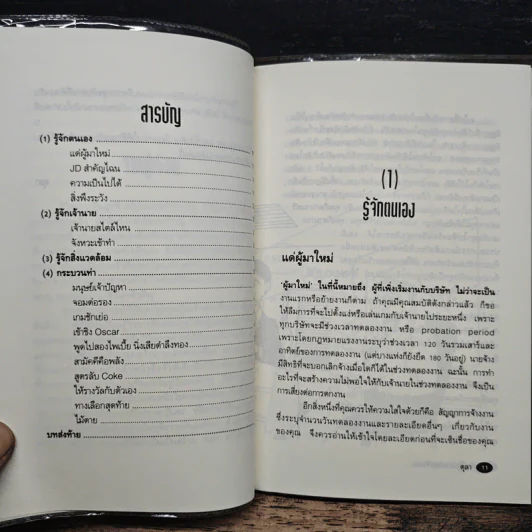 สารบัญ
(1) รู้จักตนเอง
แด่ผู้มาใหม่
JD สำคัญไฉน
ความเป็นไปได้
สิ่งพึงระวัง
(2) รู้จักเจ้านาย
เจ้านายสไตล์ไหน
จังหวะเข้าทำ
(3) รู้จักสิ่งแวดล้อม
(4) กระบวนท่า
มนุษย์เจ้าปัญหา
จอมต่อรอง
เกมชักเย่อ
เข้าชิง Oscar
พูดไปสองไพเบี้ย นิ่งเสียตำลึงทอง
สามัคคีคือพลัง
สูตรลับ Coke
ให้รางวัลกับตัวเอง
ทางเลือกสุดท้าย
ไม้ตาย
บทส่งท้าย
(1)
รู้จักตนเอง
แด่ผู้มาใหม่
'ผู้มาใหม่' ในที่นี้หมายถึง ผู้ที่เพิ่งเริ่มงานกับบริษัท ไม่ว่าจะเป็น
งานแรกหรือย้ายงานก็ตาม ถ้าคุณมีคุณสมบัติดังกล่าวแล้ว ก็ขอ
ให้ลืมการที่จะไปตั้งแง่หรือเล่นเกมกับเจ้านายไประยะหนึ่ง เพราะ
ทุกบริษัทจะมีช่วงเวลาทดลองงาน หรือ probation period
เพราะโดยกฎหมายแรงงานระบุว่าช่วงเวลา 120 วันรวมเสาร์และ
อาทิตย์ของการทดลองงาน (แต่บางแห่งก็ยังยืด 180 วันอยู่) นายจ้าง
มีสิทธิที่จะบอกเลิกจ้างเมื่อใดก็ได้ในช่วงทดลองงาน ฉะนั้น การทำ
อะไรที่จะสร้างความไม่พอใจให้กับเจ้านายในช่วงทดลองงาน จึงเป็น
การเสี่ยงต่อการตกงาน
อีกสิ่งหนึ่งที่คุณควรให้ความใส่ใจด้วยก็คือ สัญญาการจ้างงาน
ซึ่งระบุจำนวนวันทดลองงานและรายละเอียดอื่นๆ เกี่ยวกับงาน
ของคุณ จึงควรอ่านให้เข้าใจโดยละเอียดก่อนที่จะเซ็นชื่อของคุณ
ตุลา 11